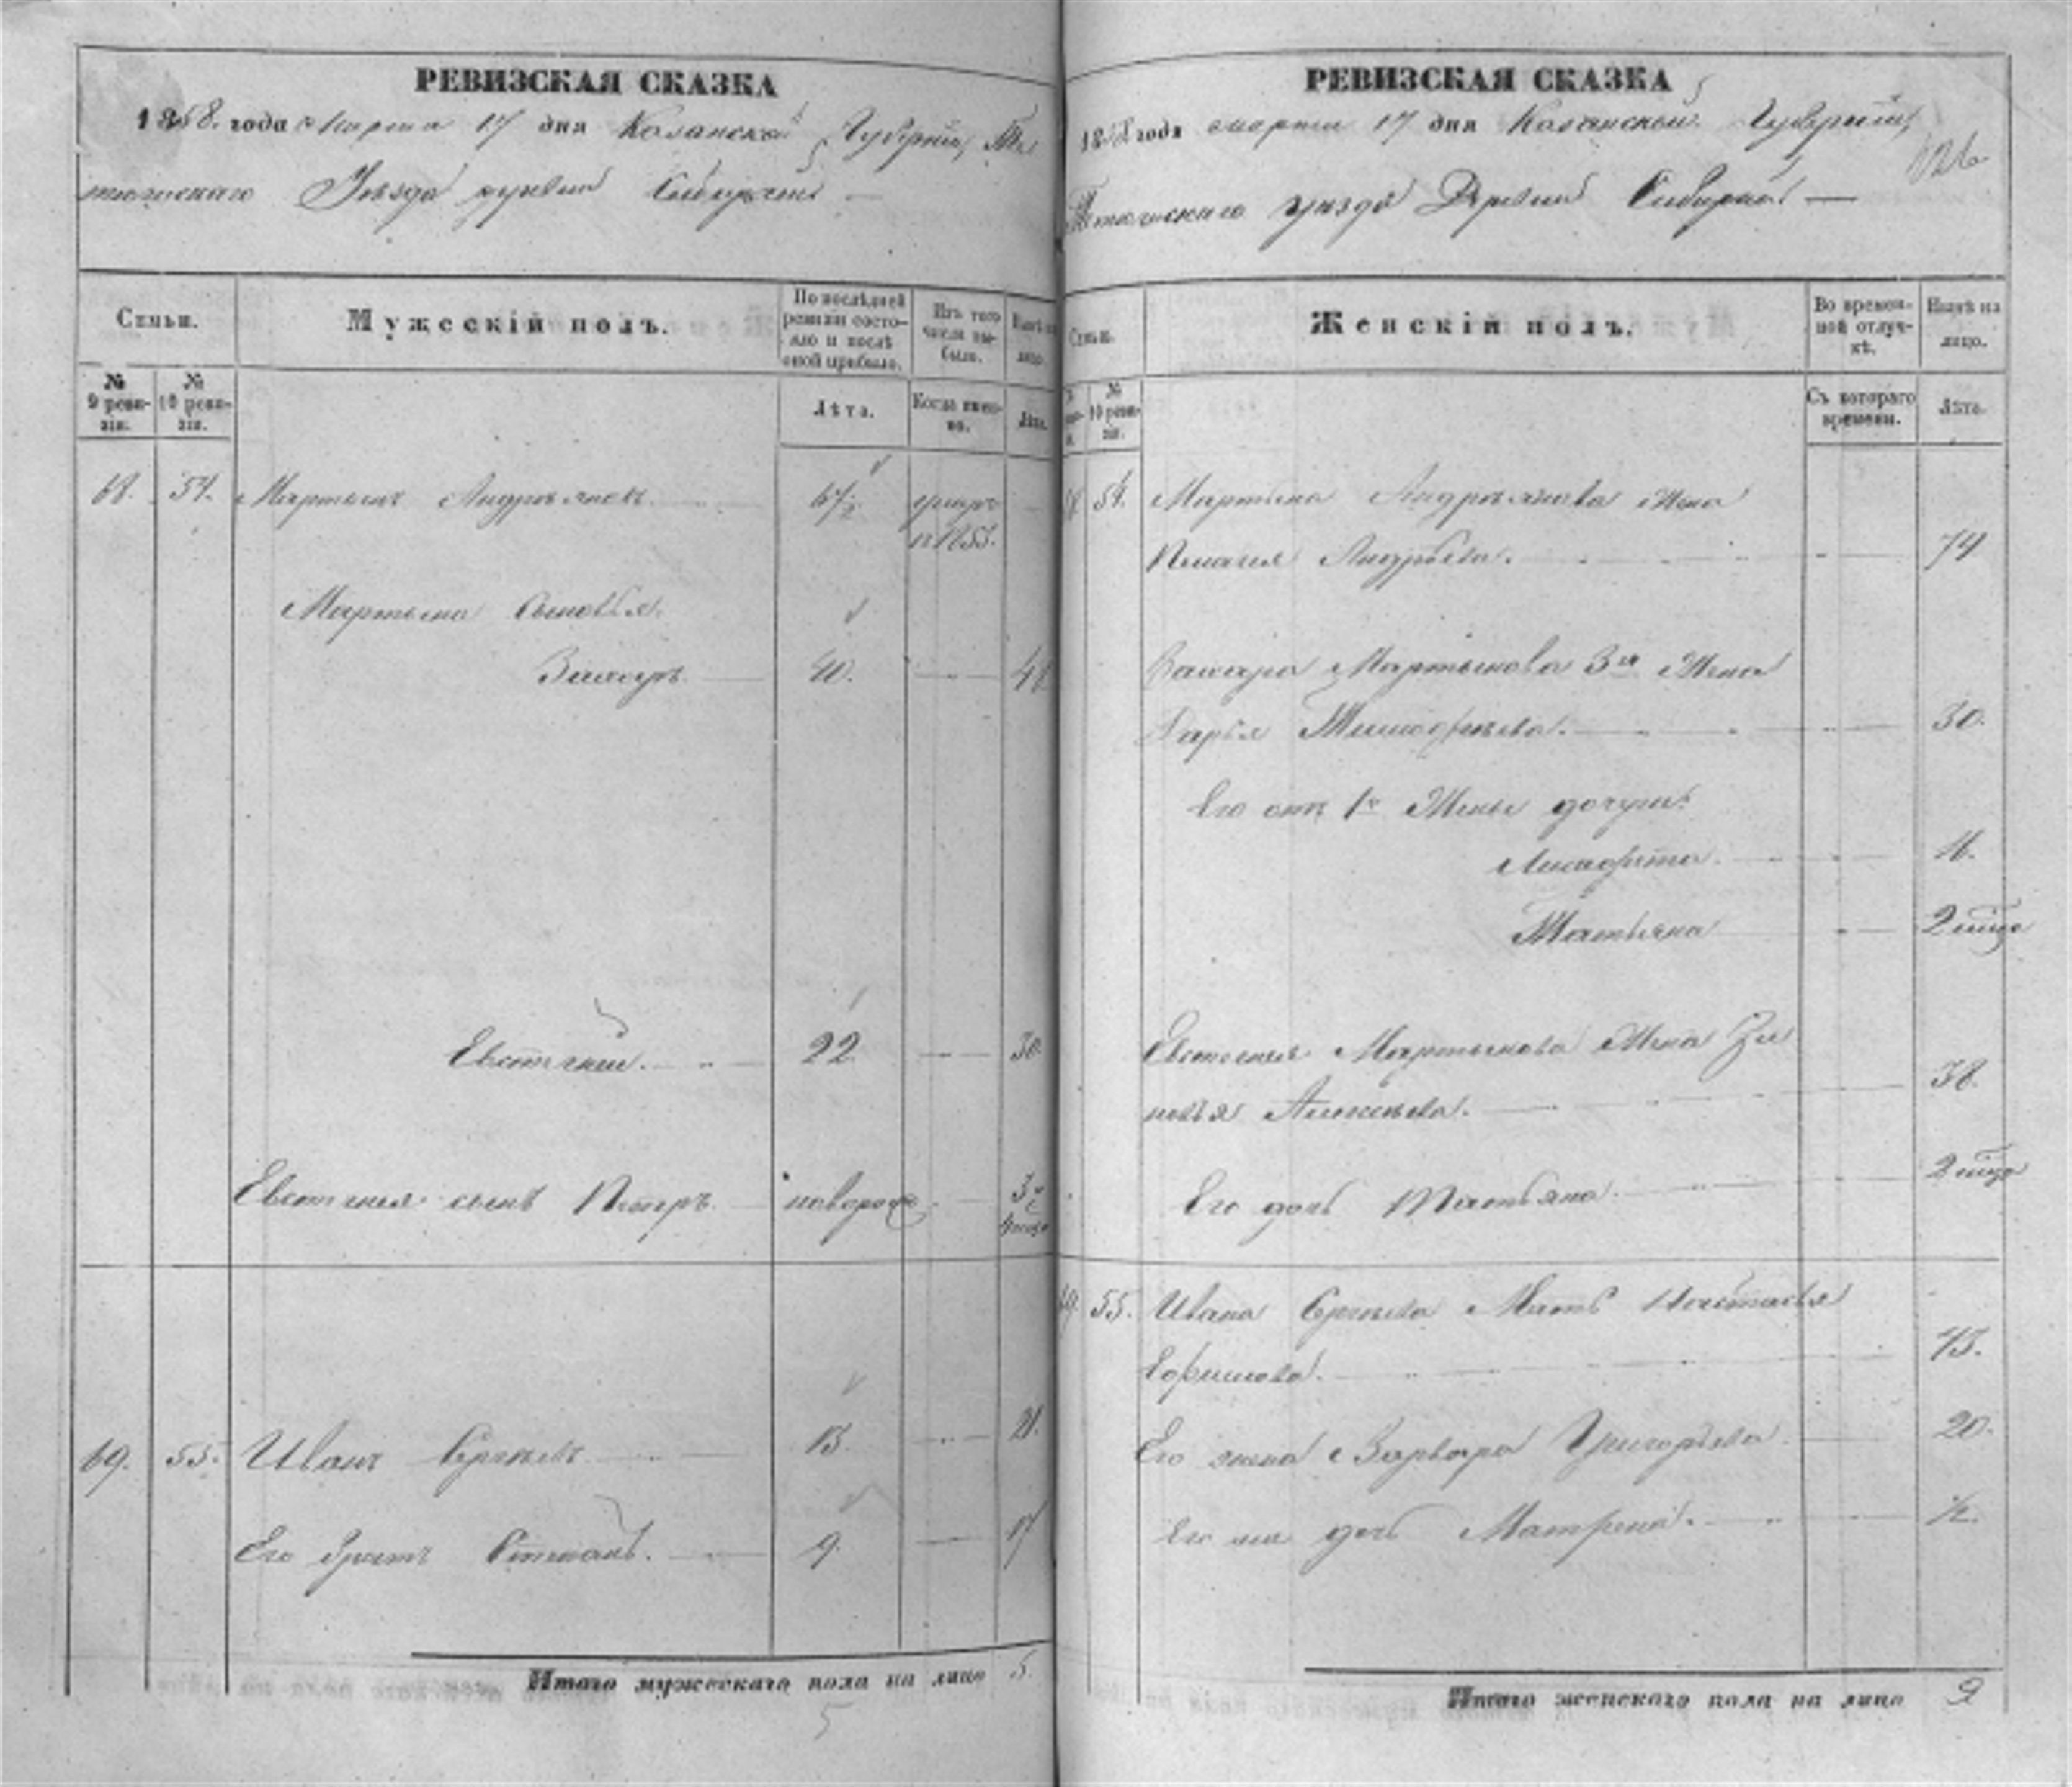 РЕВИЗСКАЯ СКАЗКА
1858. года Марта 17 дня Казанской Губернии, Те
тюшскаго Уезда деревни
Семьи.
Мужескій полъ.
По послѣдней ревизіи состо-
яло и послѣ
оной прибыло.
Изъ того
числа вы-
было.
Нынѣ на
лицо.
№
9 реви-
зіи.
№
10 реви-
зіи.
Лѣта.
Когда имен-
но.
Лѣта.
68. 54. Мартынъ Андреяновъ 67½ умеръ
в 1855.
Мартына сыновья
Захаръ 40. 48
Евстигней. 22 30
Евстигнея сынъ Петръ новорож 3
69. 55. Иванъ Сергѣевъ 13. 21.
Его братъ Степанъ. 9. 17
Итого мужескаго пола на лицо 5.
5
РЕВИЗСКАЯ СКАЗКА
1858 года марта 17 дня Казанской Губерніи,
Тетюшскаго уезда Деревни
126
Семьи.
Женскій полъ.
Во времен-
ной отлуч-
кѣ.
Нынѣ на
лицо.
№
10 реви-
зіи.
Съ котораго
времени.
Лѣта.
68 54. Мартына Андреянова жена
Пелагея Андреева. 74
Захара Мартынова 3я Жена
Дарья Тимофѣева. 30.
Его отъ 1й Жены дочери:
11.
Татьяна 2
Евстигнея Мартынова Жена Зи
новья Алексѣева. 38.
Его дочь Татьяна 2
69. 55. Ивана Сергѣева Мать Настасья
Ефимова. 45.
Его жена Варвара Григорьева 20.
Его же дочь Матрена. ½.
Итого женскаго пола на лицо 9